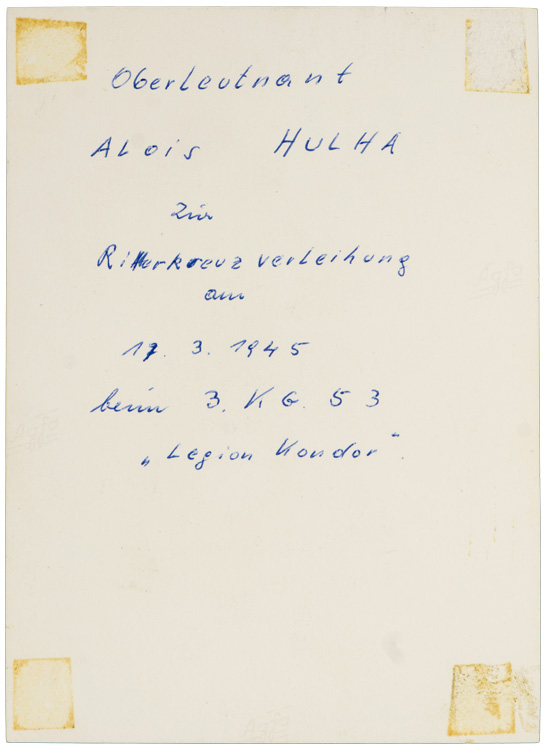 Oberleutnant
Alois HULHA
zur
Ritterkreuzverleihung
am
17. 3. 1945
beim 3. K G. 53
„Legion Kondor“.
Agfa